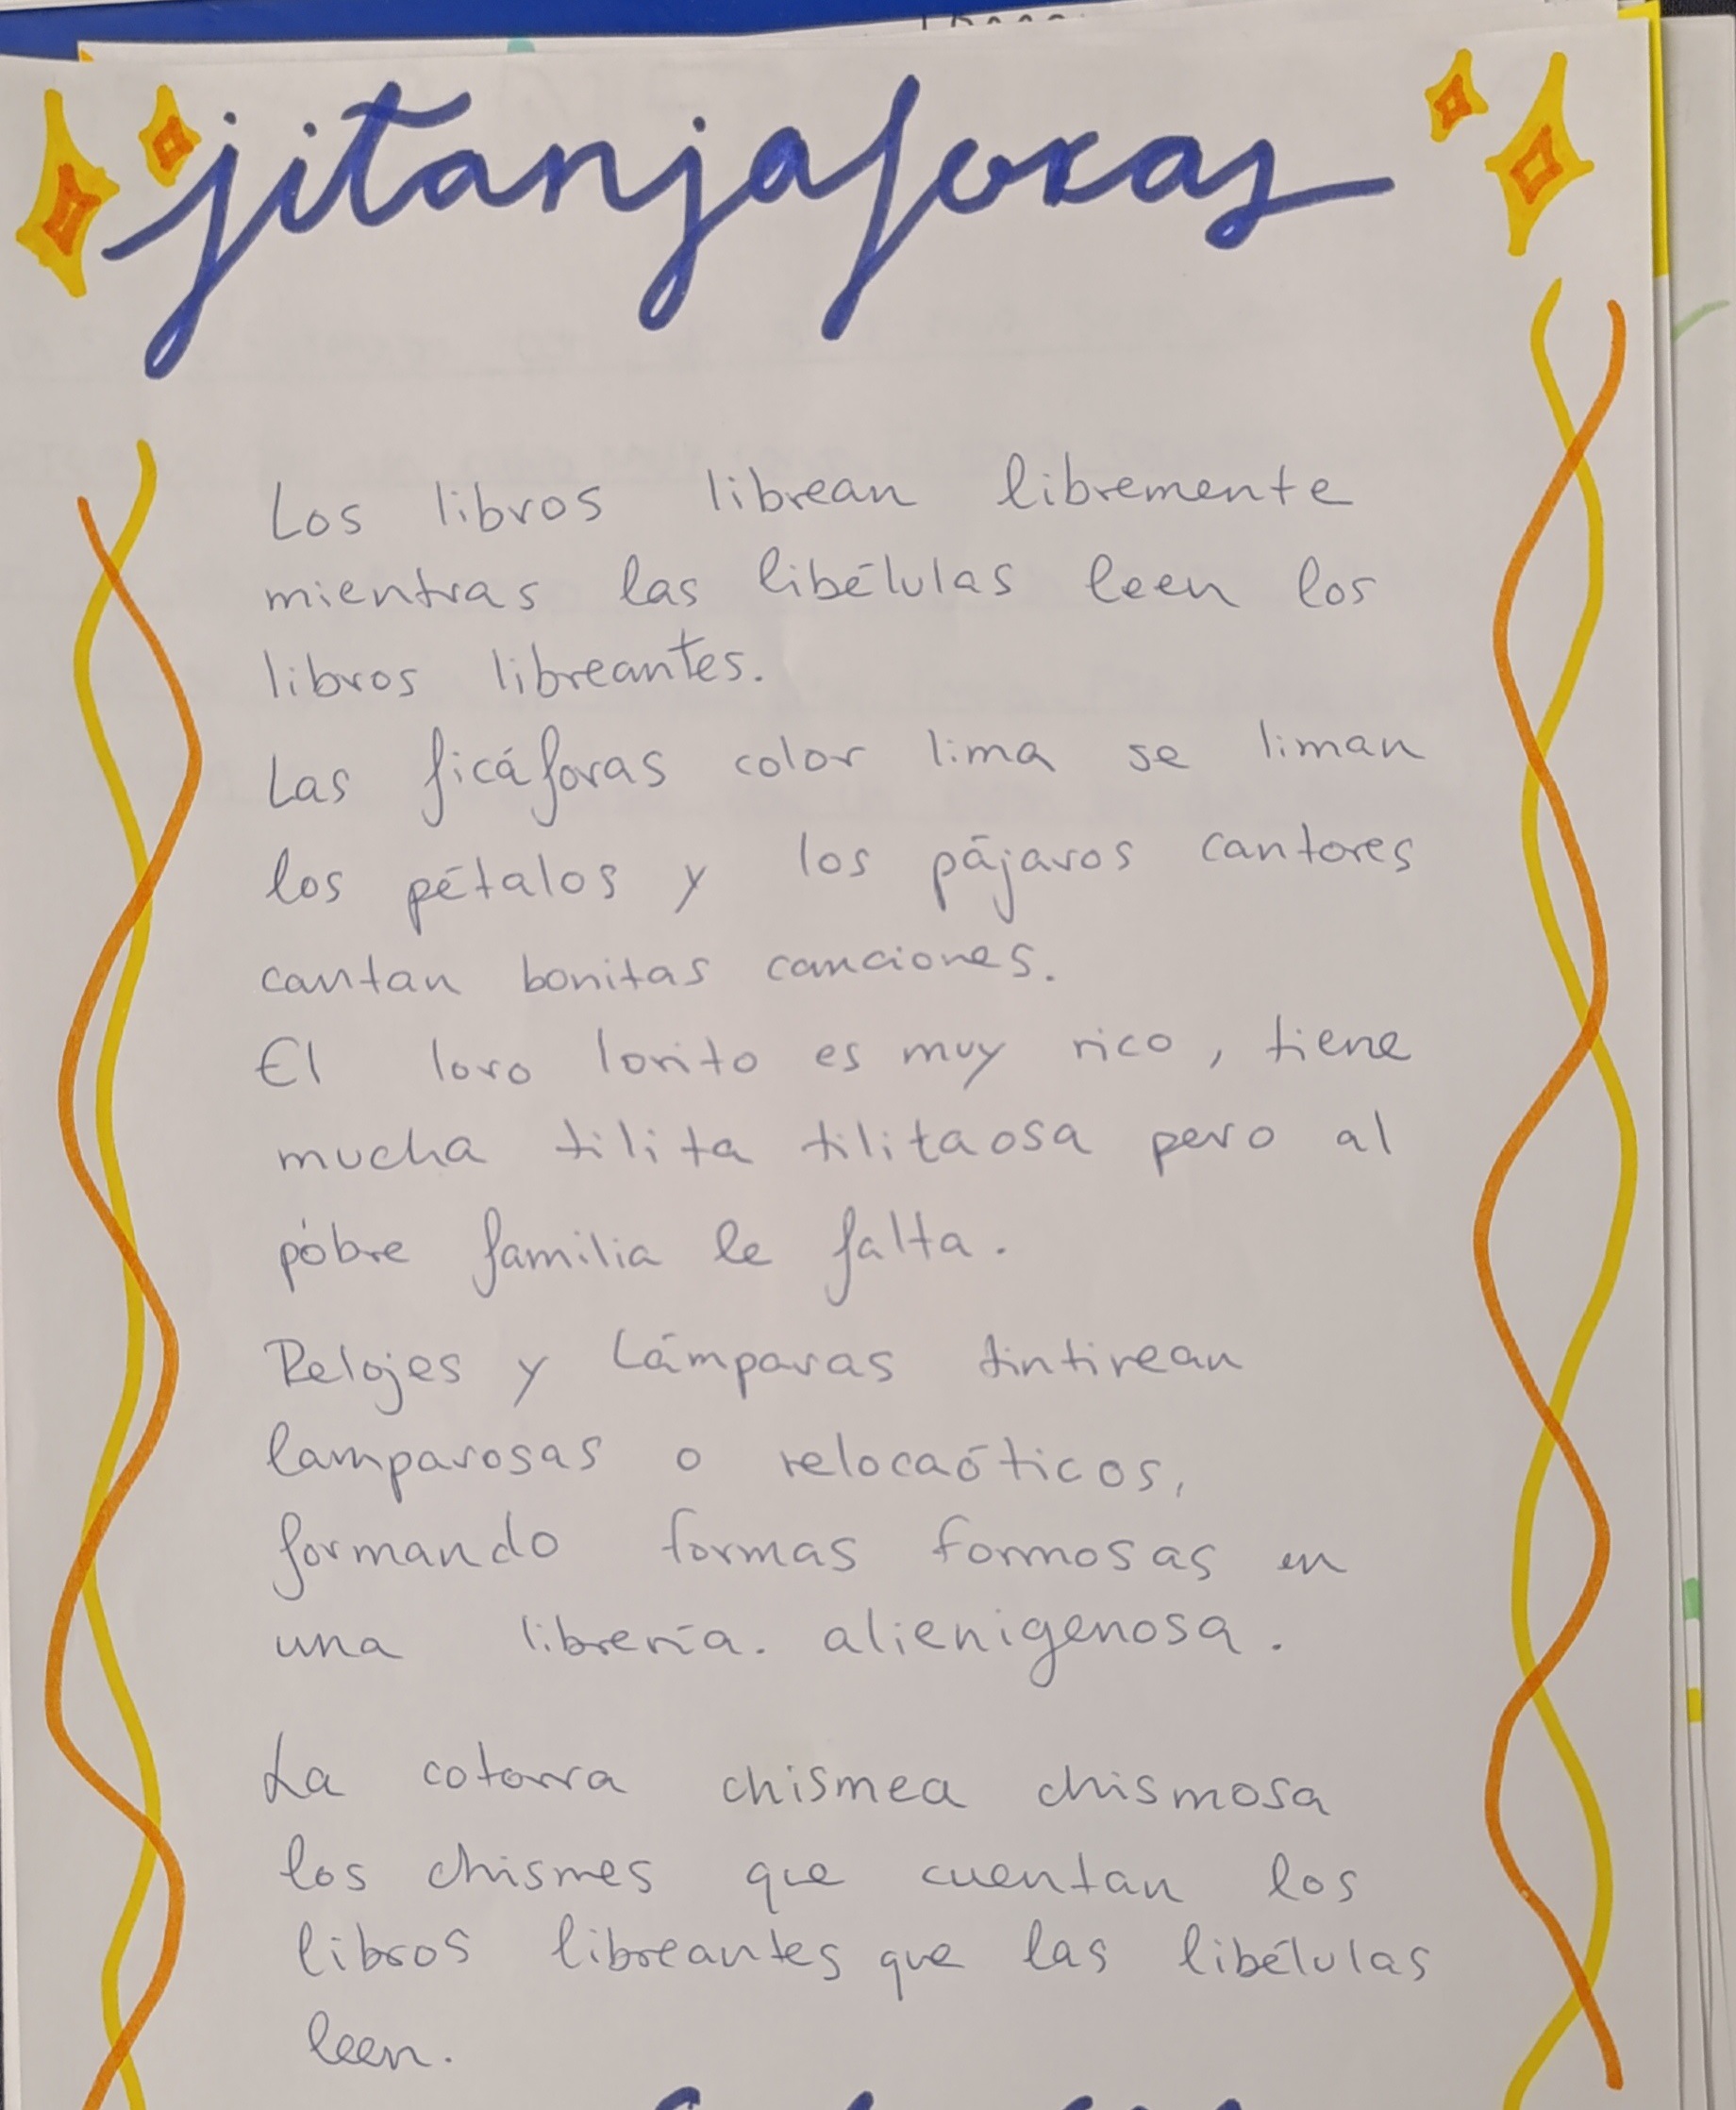 jitanjaforas
Los libros librean libremente
mientras las libélulas leen los
libros libreantes.
Las ficáforas color lima se liman
los pétalos y los pájaros cantores
cantan bonitas canciones.
El loro lorito es muy rico, tiene
mucha tilita tilitaosa pero al
póbre familia le falta.
Relojes y Lámparas tintirean
lamparosas o relocaóticos,
formando formas formosas en
una librería. alienigenosa.
La cotorra chismea chismosa
los chismes que cuentan los
libros libreantes que las libélulas
leen.